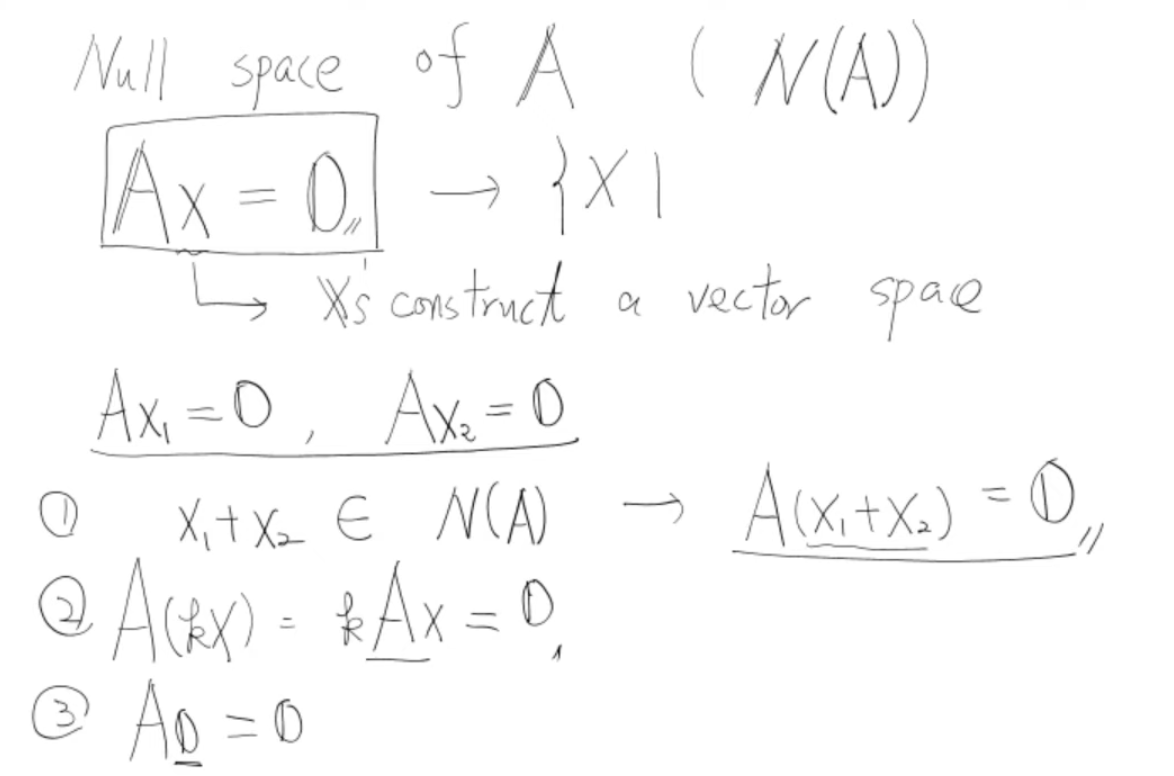 Null space of A ( N(A))
Ax = 0 → { x |
↳ x's construct a vector space
Ax₁ = 0 , Ax₂ = 0
① x₁+x₂ ∈ N(A) → A(x₁+x₂) = 0
② A(kx) = kAx = 0
③ A0 = 0